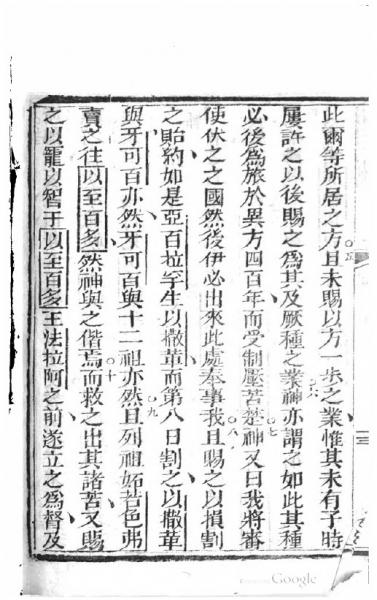 此爾等所居之方且未賜以方一步之業惟其未有子時
屢許之以後賜之爲其及厥種之業神亦謂之如此其種
必後爲旅於異方四百年而受制壓苦楚神又曰我將審
使伏之之國然後伊必出來此處奉事我且賜之以損割
之貽約如是亞百拉罕生以撒革而第八日割之以撒革
與牙可百亦然牙可百與十二祖亦然且列祖妬若色弗
賣之往以至百多然神與之偕焉而救之出其諸苦又賜
之以寵以智于以至百多王法拉阿之前遂立之爲督及
Google